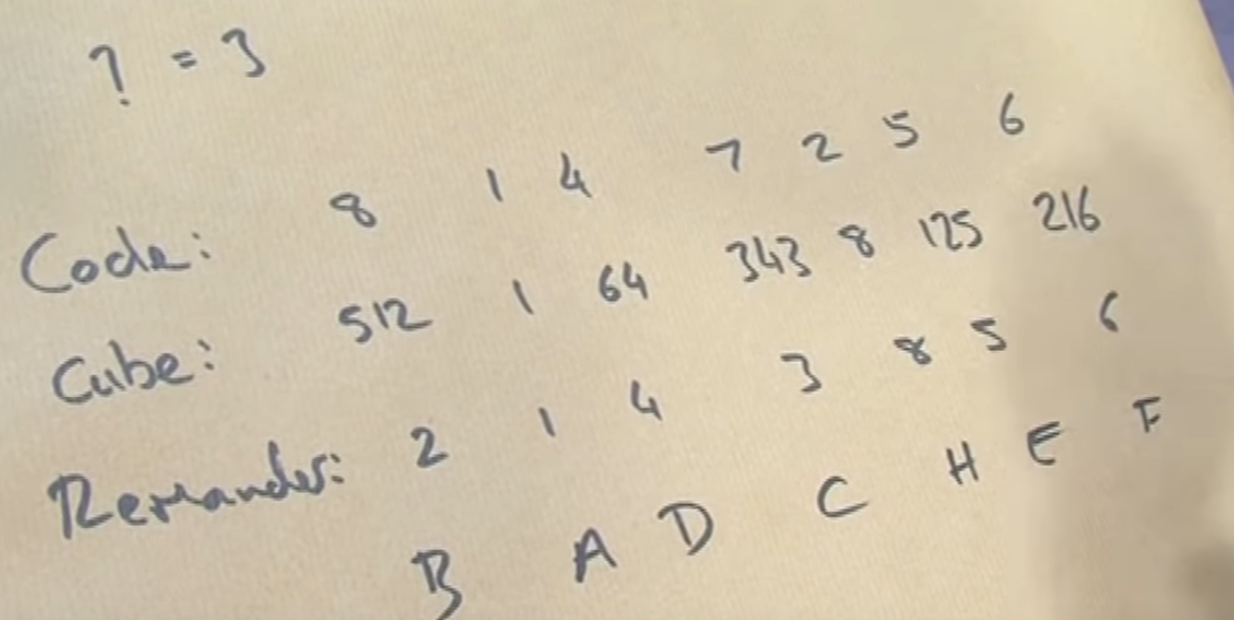 ? = 3
Code: 8 1 4 7 2 5 6
Cube: 512 1 64 343 8 125 216
Remander: 2 1 4 3 8 5 6
B A D C H E F